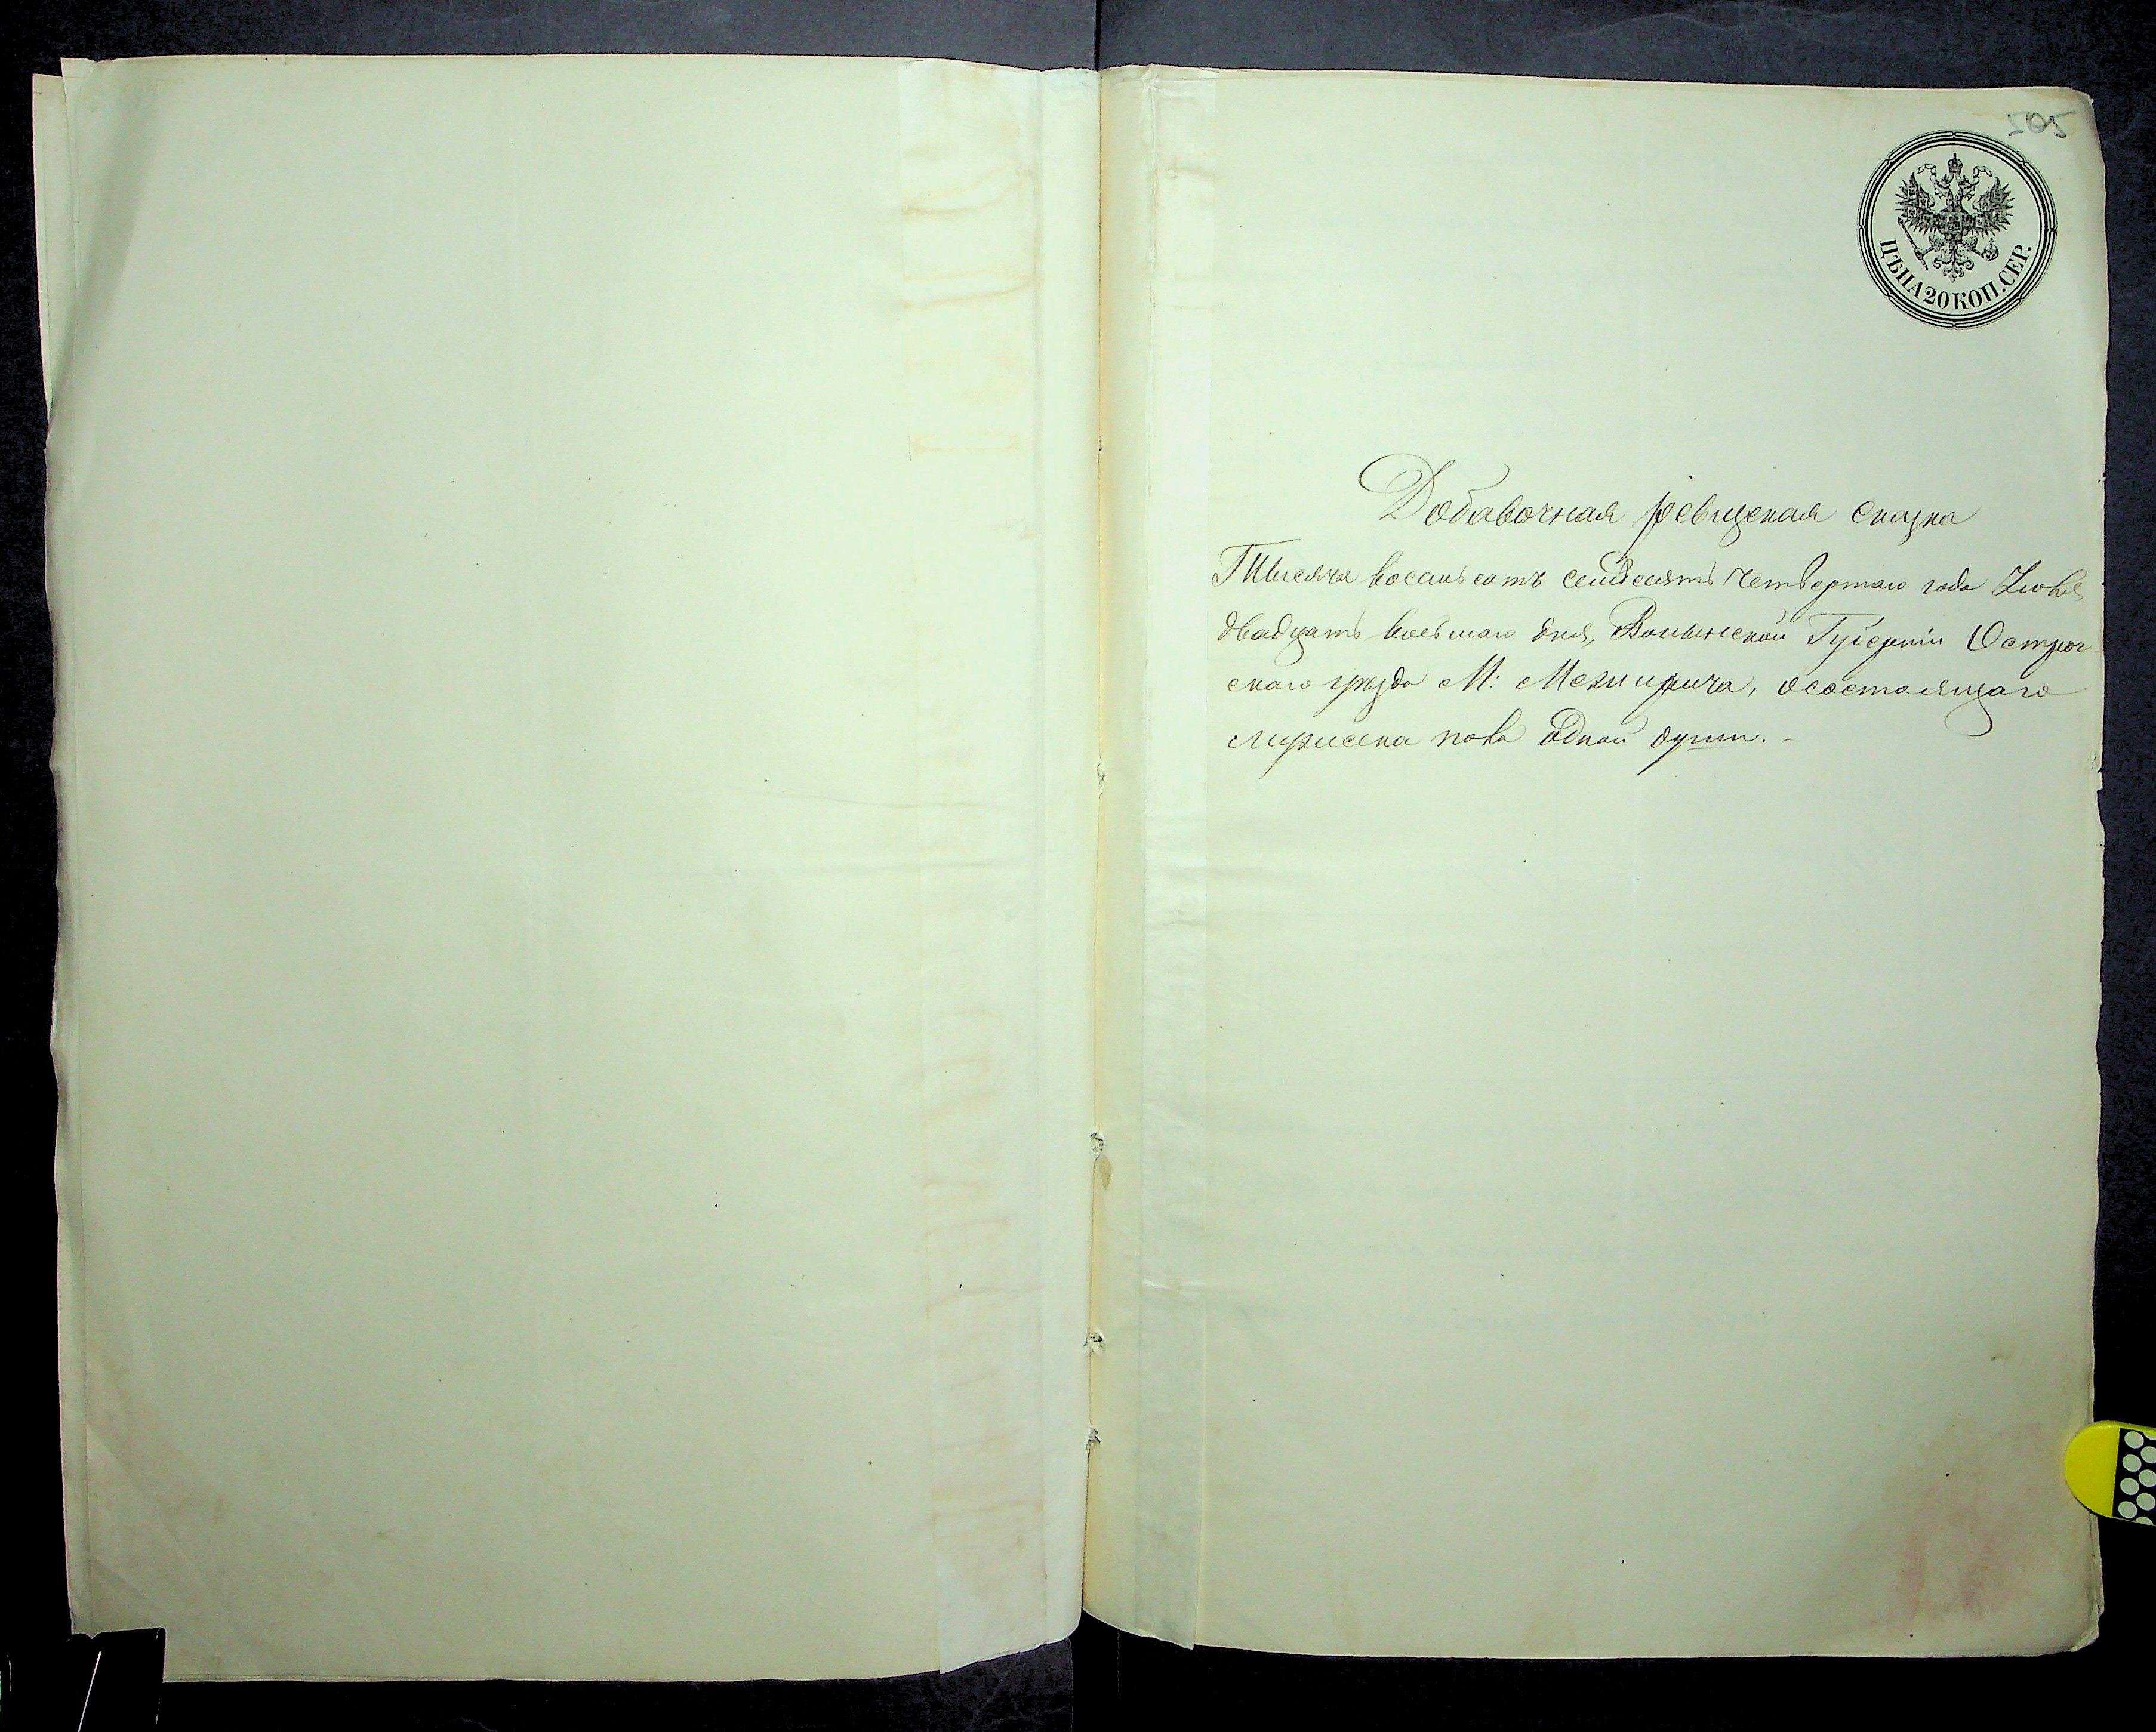 505
ЦѢНА 20 КОП. СЕР.
Добавочная ревизская сказка
Тысяча восемьсотъ семдесятъ четвертаго года Іюня
двадцать восьмаго дня, Волынской Губерніи Острог
скаго уѣзда М: Межирича, о состоящаго
мужеска пола одной души.